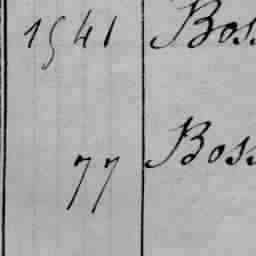 1541 Bos
77 Bos